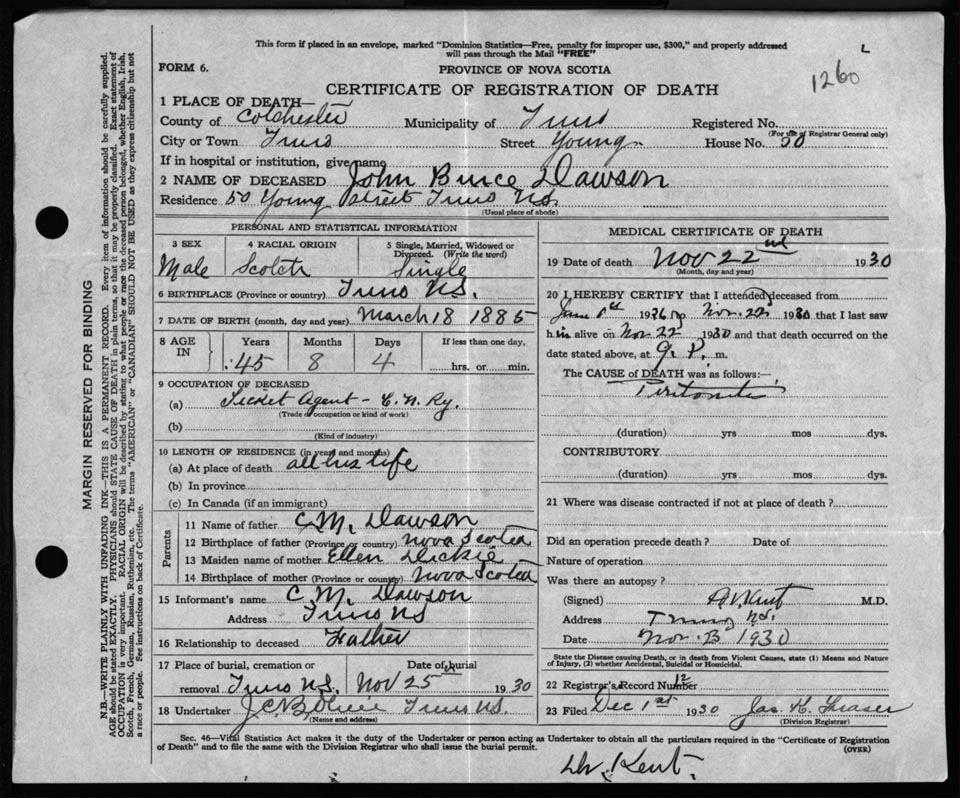 This form if placed in an envelope, marked "Dominion Statistics—Free, penalty for improper use, $300," and properly addressed
will pass through the Mail "FREE"
FORM 6.
PROVINCE OF NOVA SCOTIA
1260
CERTIFICATE OF REGISTRATION OF DEATH
1 PLACE OF DEATH—
County of Colchester Municipality of Truro Registered No.
(For use of Registrar General only)
City or Town Truro Street Young House No. 50
If in hospital or institution, give name
2 NAME OF DECEASED John Bruce Dawson
Residence 50 Young Street Truro N.S.
(Usual place of abode)
PERSONAL AND STATISTICAL INFORMATION
3 SEX 4 RACIAL ORIGIN 5 Single, Married, Widowed or
Divorced. (Write the word)
Male Scotch Single
6 BIRTHPLACE (Province or country) Truro N.S.
7 DATE OF BIRTH (month, day and year) March 18 1885
8 AGE IN Years Months Days If less than one day,
45 8 4 hrs. or min.
9 OCCUPATION OF DECEASED
(a) Ticket Agent - C. N. Ry.
(Trade occupation or kind of work)
(b)
(Kind of industry)
10 LENGTH OF RESIDENCE (in years and months)
(a) At place of death all his life
(b) In province
(c) In Canada (if an immigrant)
Parents
11 Name of father C. M. Dawson
12 Birthplace of father (Province or country) Nova Scotia
13 Maiden name of mother Ellen Dickie
14 Birthplace of mother (Province or country) Nova Scotia
15 Informant's name C. M. Dawson
Address Truro N.S.
16 Relationship to deceased Father
17 Place of burial, cremation or Date of burial
removal Truro N.S. Nov 25th 1930
18 Undertaker Truro N.S.
(Name and address)
MEDICAL CERTIFICATE OF DEATH
19 Date of death Nov 22nd 1930
(Month, day and year)
20 I HEREBY CERTIFY that I attended deceased from
Nov. 22 1930 that I last saw
him alive on Nov 22 1930 and that death occurred on the
date stated above, at 9 P. m.
The CAUSE of DEATH was as follows:—
Peritonitis
(duration) yrs mos dys.
CONTRIBUTORY
(duration) yrs mos dys.
21 Where was disease contracted if not at place of death?
Did an operation precede death? Date of
Nature of operation
Was there an autopsy?
(Signed) Kent M.D.
Address Truro N.S.
Date Nov. 1930
State the Disease causing Death, or in death from Violent Causes, state (1) Means and Nature
of Injury, (2) whether Accidental, Suicidal or Homicidal.
22 Registrar's Record Number 12
23 Filed Dec 1st 1930 Jas. K. Fraser
(Division Registrar)
Sec. 46—Vital Statistics Act makes it the duty of the Undertaker or person acting as Undertaker to obtain all the particulars required in the "Certificate of Registration
of Death" and to file the same with the Division Registrar who shall issue the burial permit.
(OVER)
Dr. Kent.
MARGIN RESERVED FOR BINDING
N.B.—WRITE PLAINLY WITH UNFADING INK—THIS IS A PERMANENT RECORD. Every item of information should be carefully supplied.
AGE should be stated EXACTLY. PHYSICIANS should STATE CAUSE OF DEATH in plain terms, so that it may be properly classified. Exact statement of
OCCUPATION is very important. RACIAL ORIGIN will be described by stating to what people or race the deceased person belonged, whether English, Irish,
Scotch, French, German, Russian, Ruthenian, etc. The terms "AMERICAN" or "CANADIAN" SHOULD NOT BE USED as they express citizenship but not
a race or people. See instructions on back of Certificate.